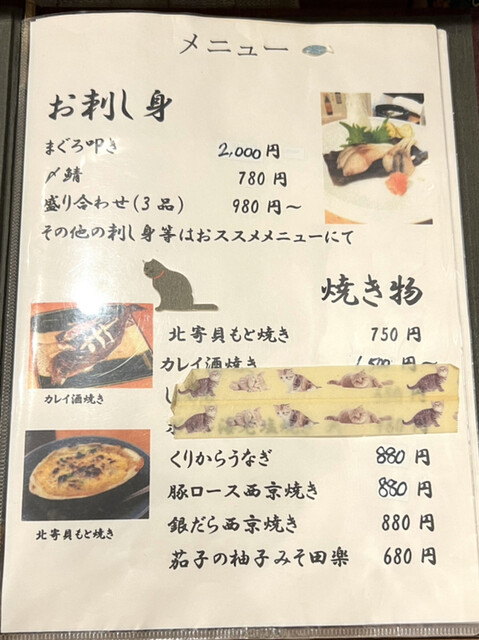 メニュー
お刺し身
まぐろ叩き 2,000円
〆鯖 780円
盛り合わせ(3品) 980円～
その他の刺し身等はおススメメニューにて
焼き物
北寄貝もと焼き 750円
カレイ酒焼き 1,500円～
くりからうなぎ 880円
豚ロース西京焼き 880円
銀だら西京焼き 880円
茄子の柚子みそ田楽 680円
カレイ酒焼き
北寄貝もと焼き